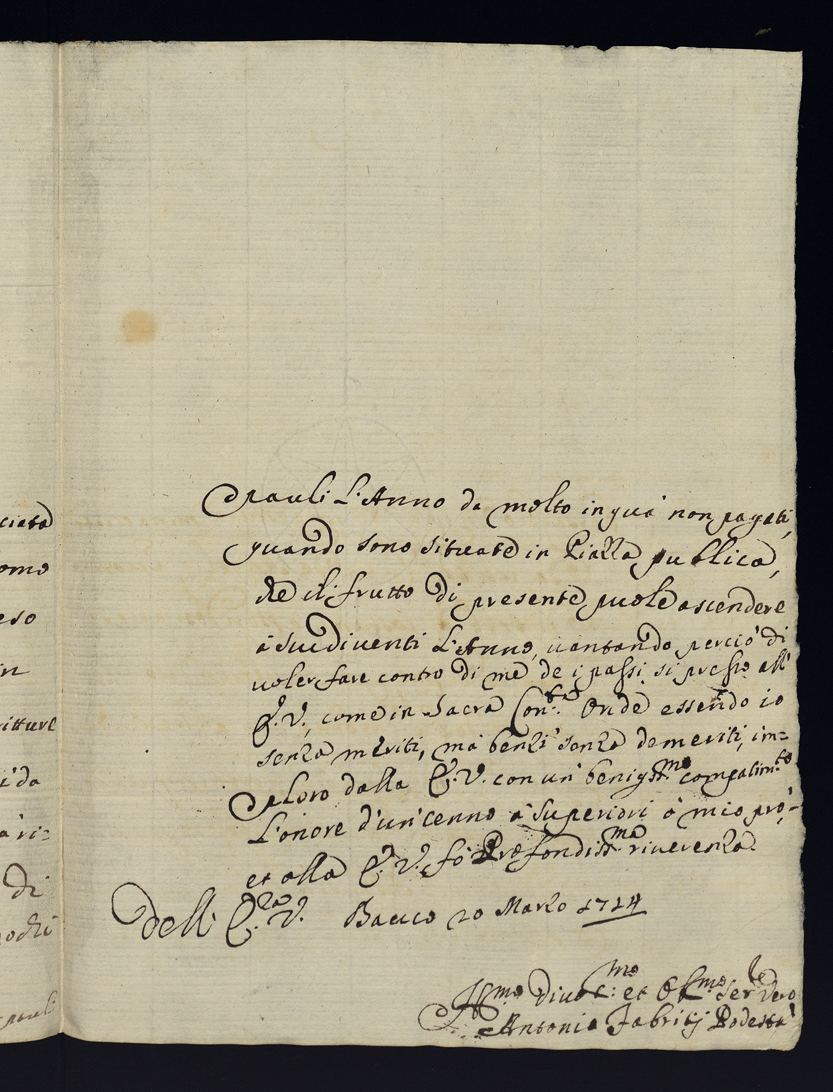 ciata
ome
eso
in
ritture
i da
a ri=
di
ochi
pauli
pauli L'Anno da molto in quà non pagati,
quando sono situate in Piazza publica,
che il frutto di presente puole ascendere
à Scudi venti L'Anno, vantando perciò di
voler fare contro di me de i passi si presso all'
E. V., come in Sacra Con:ta Onde essendo io
senza meriti, mà benzi senza demeriti, im=
ploro dalla E. V. con un' benigmo compatimto
L'onore d'un' cenno à Superiori à mio prò,
et alla E. V. fò Profondissma riverenza.
Dell' E.za V. Bacuco 20 Marzo 1714
Hmo Divotmo et Obmo Serle Vero
Antonio Fabritij Podestà